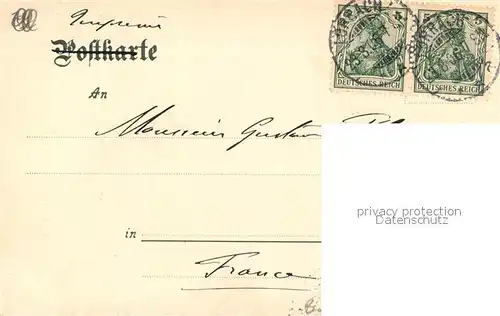 Imprimé
Postkarte
5
5
DEUTSCHES REICH
DEUTSCHES REICH
An
Monsieur Gustave
in
France
privacy protection
Datenschutz